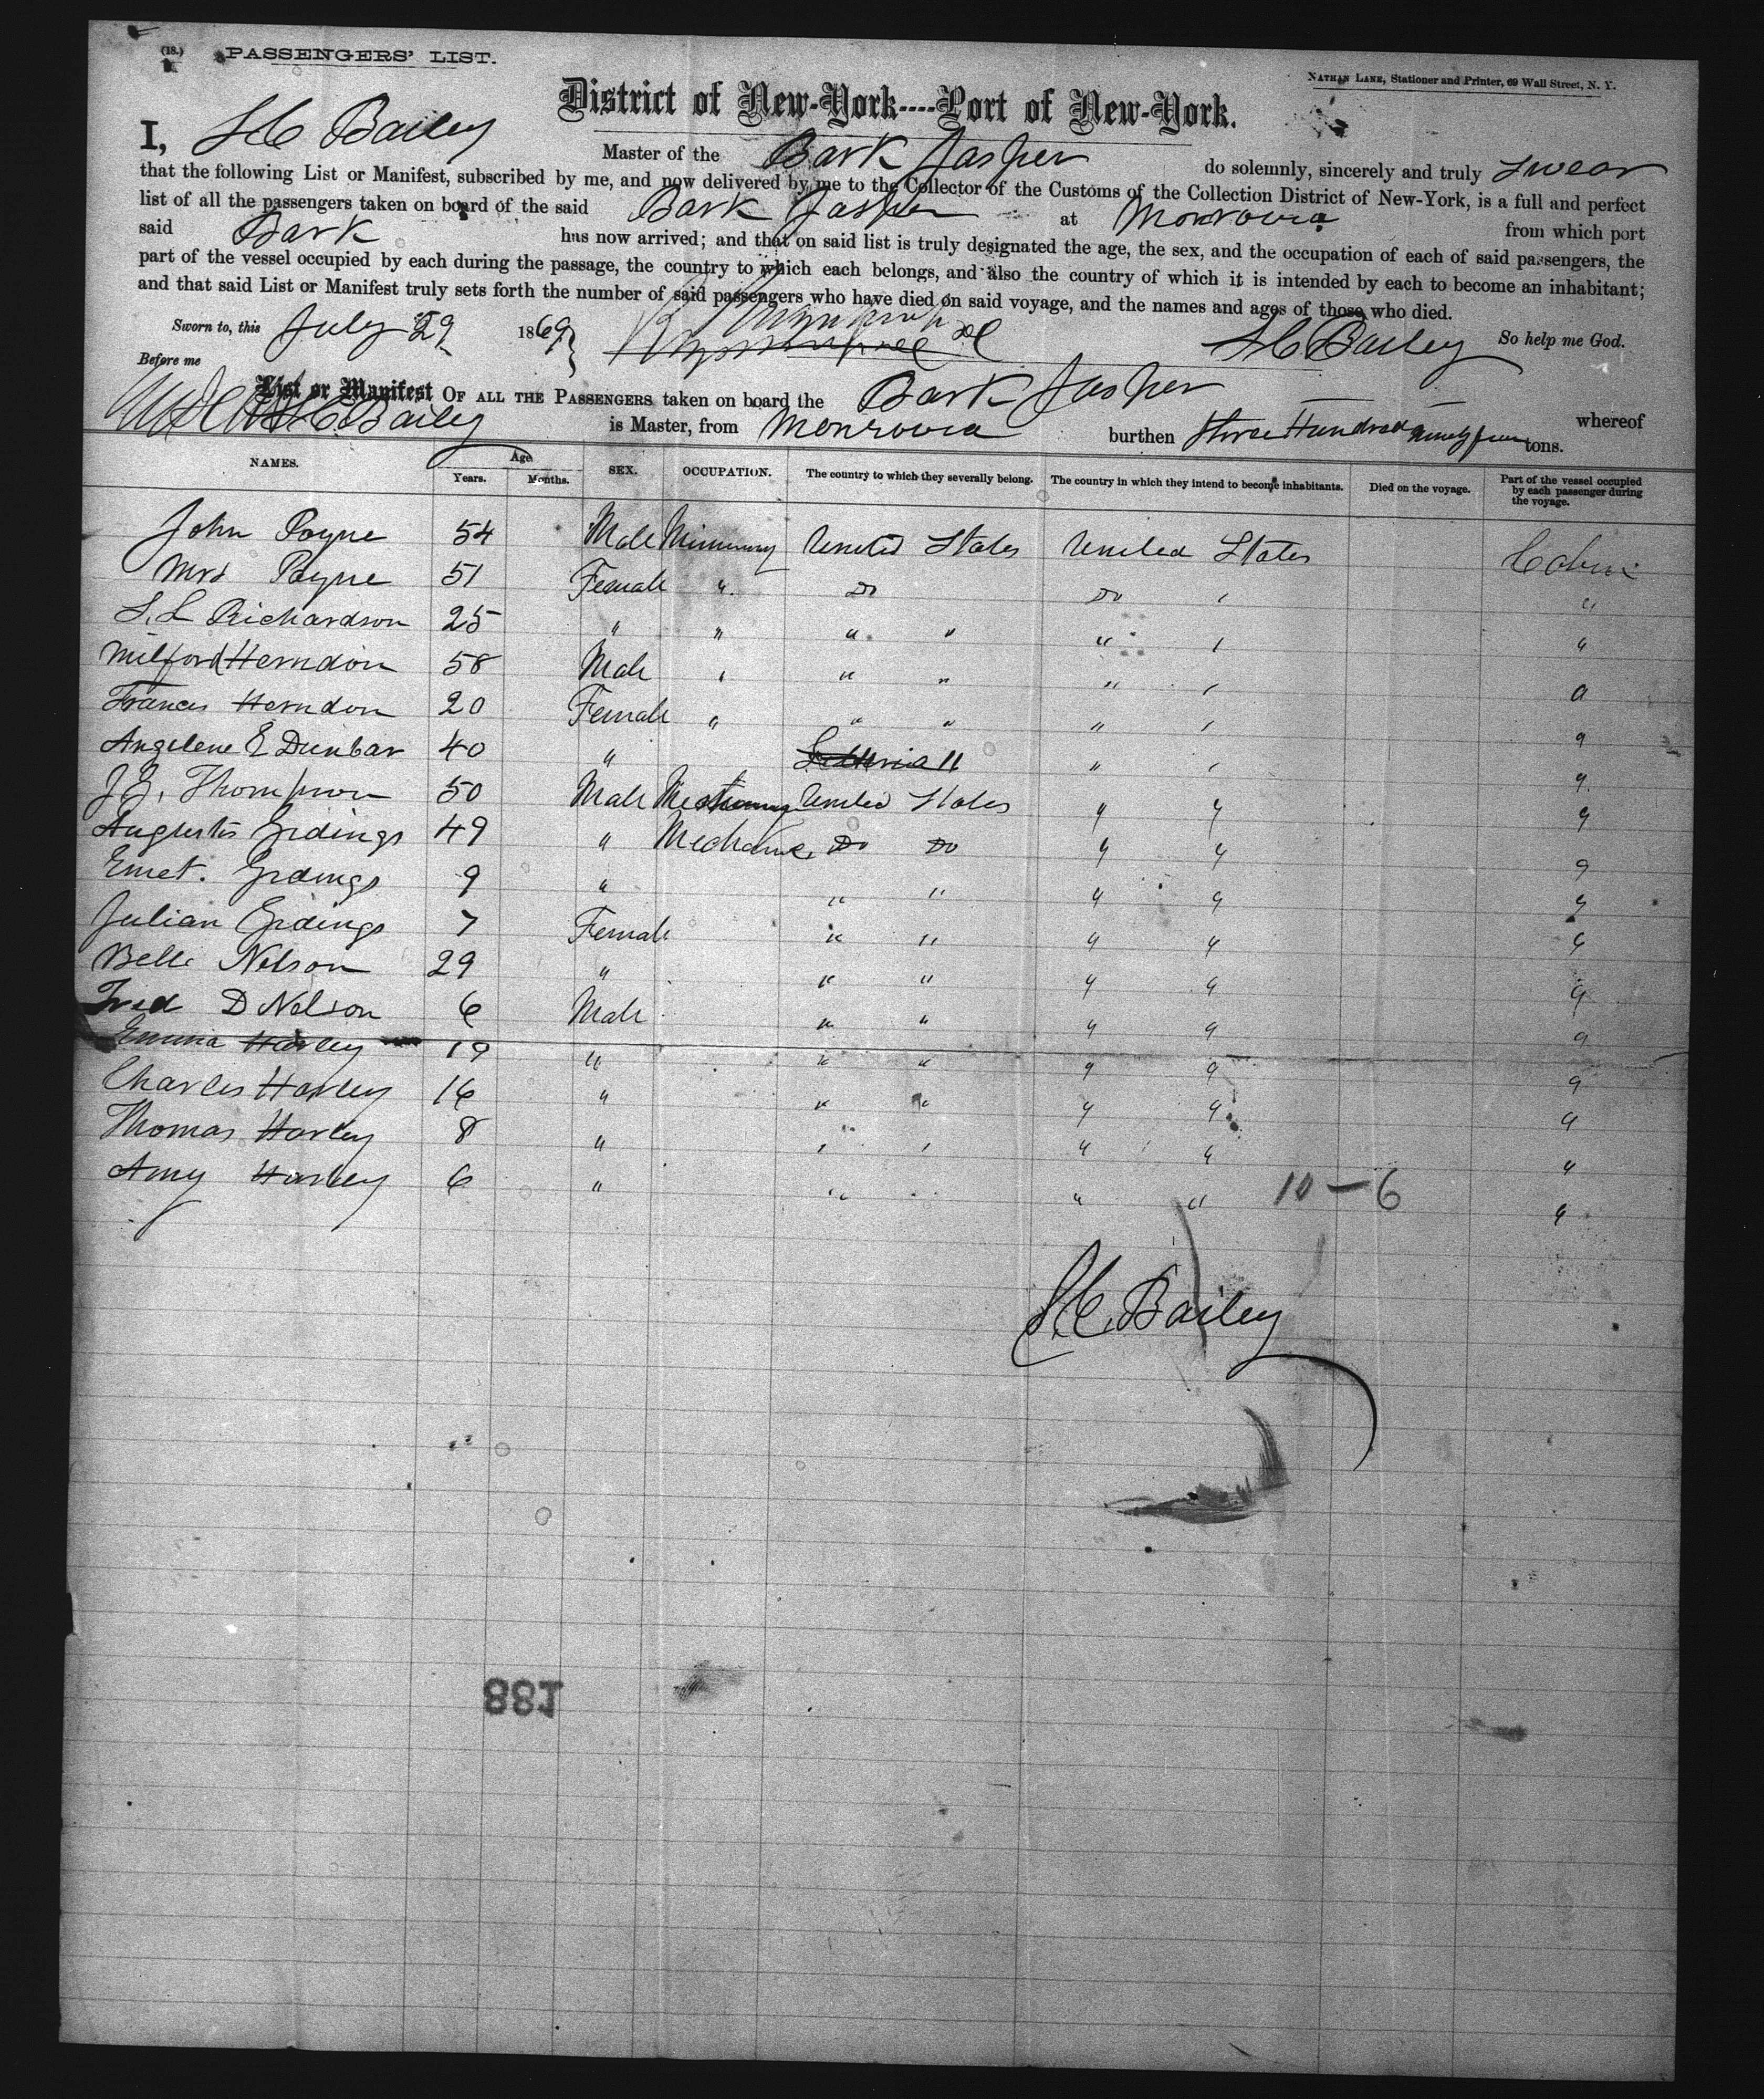 (18.) PASSENGERS' LIST.
NATHAN LANE, Stationer and Printer, 69 Wall Street, N. Y.
District of New-York----Port of New-York.
I, S C Bailey Master of the Bark Jasper do solemnly, sincerely and truly swear
that the following List or Manifest, subscribed by me, and now delivered by me to the Collector of the Customs of the Collection District of New-York, is a full and perfect
list of all the passengers taken on board of the said Bark Jasper at Monrovia from which port
said Bark has now arrived; and that on said list is truly designated the age, the sex, and the occupation of each of said passengers, the
part of the vessel occupied by each during the passage, the country to which each belongs, and also the country of which it is intended by each to become an inhabitant;
and that said List or Manifest truly sets forth the number of said passengers who have died on said voyage, and the names and ages of those who died.
Sworn to, this July 29 1869 S C Bailey So help me God.
Before me
List or Manifest OF ALL THE PASSENGERS taken on board the Bark Jasper whereof
S C Bailey is Master, from Monrovia burthen Three Hundred Ninety tons.
NAMES. Age Years. Months. SEX. OCCUPATION. The country to which they severally belong. The country in which they intend to become inhabitants. Died on the voyage. Part of the vessel occupied by each passenger during the voyage.
John Payne 54 Male Missionary United States United States Cabin
Mrs Payne 51 Female " Do Do " "
S. L Richardson 25 " " " " " " "
Milford Herndon 58 Male " " " " " "
Frances Herndon 20 Female " " " " " "
Angelene E Dunbar 40 " " " " "
J. Thompson 50 Male United States " " "
Augustus Gidings 49 " Mechanic Do Do " " "
Emet. Gidings 9 " " " " " "
Julian Gidings 7 Female " " " " "
Belle Nelson 29 " " " " " "
Fred D Nelson 6 Male " " " " "
Emma Harley 19 " " " " " "
Charles Harley 16 " " " " " "
Thomas Harley 8 " " " " " "
Amy Harley 6 " " " " " "
10-6
S. C. Bailey
188